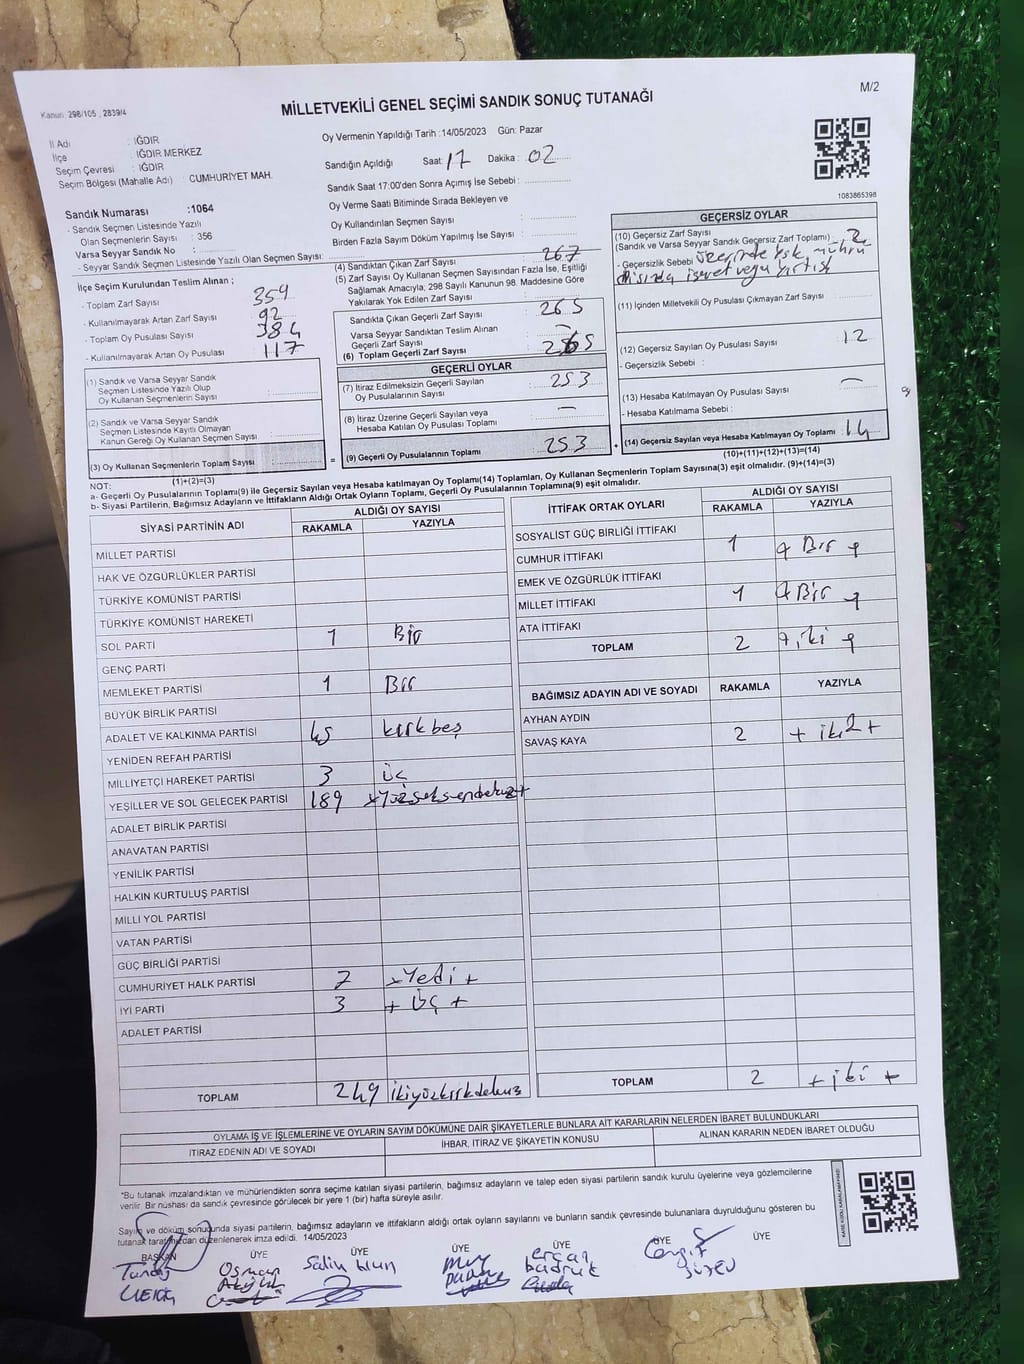 Kanun: 298/105 , 2839/4
M/2
MİLLETVEKİLİ GENEL SEÇİMİ SANDIK SONUÇ TUTANAĞI
İl Adı : IĞDIR
İlçe : IĞDIR MERKEZ
Seçim Çevresi : IĞDIR
Seçim Bölgesi (Mahalle Adı) : CUMHURİYET MAH.
Oy Vermenin Yapıldığı Tarih :14/05/2023 Gün: Pazar
Sandığın Açıldığı Saat: 17 Dakika : 02
Sandık Saat 17:00'den Sonra Açımış İse Sebebi :
Oy Verme Saati Bitiminde Sırada Bekleyen ve
Oy Kullandırılan Seçmen Sayısı :
Birden Fazla Sayım Döküm Yapılmış İse Sayısı :
1083865398
Sandık Numarası :1064
- Sandık Seçmen Listesinde Yazılı
Olan Seçmenlerin Sayısı : 356
Varsa Seyyar Sandık No :
- Seyyar Sandık Seçmen Listesinde Yazılı Olan Seçmen Sayısı:
İlçe Seçim Kurulundan Teslim Alınan ;
- Toplam Zarf Sayısı : 359
- Kullanılmayarak Artan Zarf Sayısı : 92
- Toplam Oy Pusulası Sayısı : 384
- Kullanılmayarak Artan Oy Pusulası : 117
(1) Sandık ve Varsa Seyyar Sandık
Seçmen Listesinde Yazılı Olup
Oy Kullanan Seçmenlerin Sayısı :
(2) Sandık ve Varsa Seyyar Sandık
Seçmen Listesinde Kayıtlı Olmayan
Kanun Gereği Oy Kullanan Seçmen Sayısı :
(3) Oy Kullanan Seçmenlerin Toplam Sayısı :
(1)+(2)=(3)
(4) Sandıktan Çıkan Zarf Sayısı : 267
(5) Zarf Sayısı Oy Kullanan Seçmen Sayısından Fazla İse, Eşitliği
Sağlamak Amacıyla; 298 Sayılı Kanunun 98. Maddesine Göre
Yakılarak Yok Edilen Zarf Sayısı :
Sandıkta Çıkan Geçerli Zarf Sayısı : 265
Varsa Seyyar Sandıktan Teslim Alınan
Geçerli Zarf Sayısı : —
(6) Toplam Geçerli Zarf Sayısı : 265
GEÇERLİ OYLAR
(7) İtiraz Edilmeksizin Geçerli Sayılan
Oy Pusulalarının Sayısı : 253
(8) İtiraz Üzerine Geçerli Sayılan veya
Hesaba Katılan Oy Pusulası Toplamı : —
(9) Geçerli Oy Pusulalarının Toplamı : 253
GEÇERSİZ OYLAR
(10) Geçersiz Zarf Sayısı
(Sandık ve Varsa Seyyar Sandık Geçersiz Zarf Toplamı) : 2
- Geçersizlik Sebebi : üzerinde ysk mührü
dışında işaret veya yırtık
(11) İçinden Milletvekili Oy Pusulası Çıkmayan Zarf Sayısı :
(12) Geçersiz Sayılan Oy Pusulası Sayısı : 12
- Geçersizlik Sebebi :
(13) Hesaba Katılmayan Oy Pusulası Sayısı : —
- Hesaba Katılmama Sebebi :
(14) Geçersiz Sayılan veya Hesaba Katılmayan Oy Toplamı : 14
(10)+(11)+(12)+(13)=(14)
NOT:
a- Geçerli Oy Pusulalarının Toplamı(9) ile Geçersiz Sayılan veya Hesaba katılmayan Oy Toplamı(14) Toplamları, Oy Kullanan Seçmenlerin Toplam Sayısına(3) eşit olmalıdır. (9)+(14)=(3)
b- Siyasi Partilerin, Bağımsız Adayların ve İttifakların Aldığı Ortak Oyların Toplamı, Geçerli Oy Pusulalarının Toplamına(9) eşit olmalıdır.
SİYASİ PARTİNİN ADI ALDIĞI OY SAYISI
RAKAMLA YAZIYLA
MİLLET PARTİSİ
HAK VE ÖZGÜRLÜKLER PARTİSİ
TÜRKİYE KOMÜNİST PARTİSİ
TÜRKİYE KOMÜNİST HAREKETİ
SOL PARTİ 1 Bir
GENÇ PARTİ
MEMLEKET PARTİSİ 1 Bir
BÜYÜK BİRLİK PARTİSİ
ADALET VE KALKINMA PARTİSİ 45 kırkbeş
YENİDEN REFAH PARTİSİ
MİLLİYETÇİ HAREKET PARTİSİ 3 üç
YEŞİLLER VE SOL GELECEK PARTİSİ 189 +yüzseksendokuz+
ADALET BİRLİK PARTİSİ
ANAVATAN PARTİSİ
YENİLİK PARTİSİ
HALKIN KURTULUŞ PARTİSİ
MİLLİ YOL PARTİSİ
VATAN PARTİSİ
GÜÇ BİRLİĞİ PARTİSİ
CUMHURİYET HALK PARTİSİ 7 +Yedi+
İYİ PARTİ 3 + üç +
ADALET PARTİSİ
TOPLAM 249 ikiyüzkırkdokuz
İTTİFAK ORTAK OYLARI ALDIĞI OY SAYISI
RAKAMLA YAZIYLA
SOSYALİST GÜÇ BİRLİĞİ İTTİFAKI
CUMHUR İTTİFAKI 1 + Bir +
EMEK VE ÖZGÜRLÜK İTTİFAKI
MİLLET İTTİFAKI 1 + Bir +
ATA İTTİFAKI
TOPLAM 2 + iki +
BAĞIMSIZ ADAYIN ADI VE SOYADI RAKAMLA YAZIYLA
AYHAN AYDIN
SAVAŞ KAYA 2 + iki2 +
TOPLAM 2 + iki +
OYLAMA İŞ VE İŞLEMLERİNE VE OYLARIN SAYIM DÖKÜMÜNE DAİR ŞİKAYETLERLE BUNLARA AİT KARARLARIN NELERDEN İBARET BULUNDUKLARI
İTİRAZ EDENİN ADI VE SOYADI
İHBAR, İTİRAZ VE ŞİKAYETİN KONUSU
ALINAN KARARIN NEDEN İBARET OLDUĞU
*Bu tutanak imzalandıktan ve mühürlendikten sonra seçime katılan siyasi partilerin, bağımsız adayların ve talep eden siyasi partilerin sandık kurulu üyelerine veya gözlemcilerine
verilir. Bir nüshası da sandık çevresinde görülecek bir yere 1 (bir) hafta süreyle asılır.
Sayım ve döküm sonucunda siyasi partilerin, bağımsız adayların ve ittifakların aldığı ortak oyların sayılarını ve bunların sandık çevresinde bulunanlara duyrulduğunu gösteren bu
tutanak tarafımızdan düzenlenerek imza edildi. 14/05/2023
BAŞKAN ÜYE ÜYE ÜYE ÜYE ÜYE ÜYE
Osman
Salih
ercan